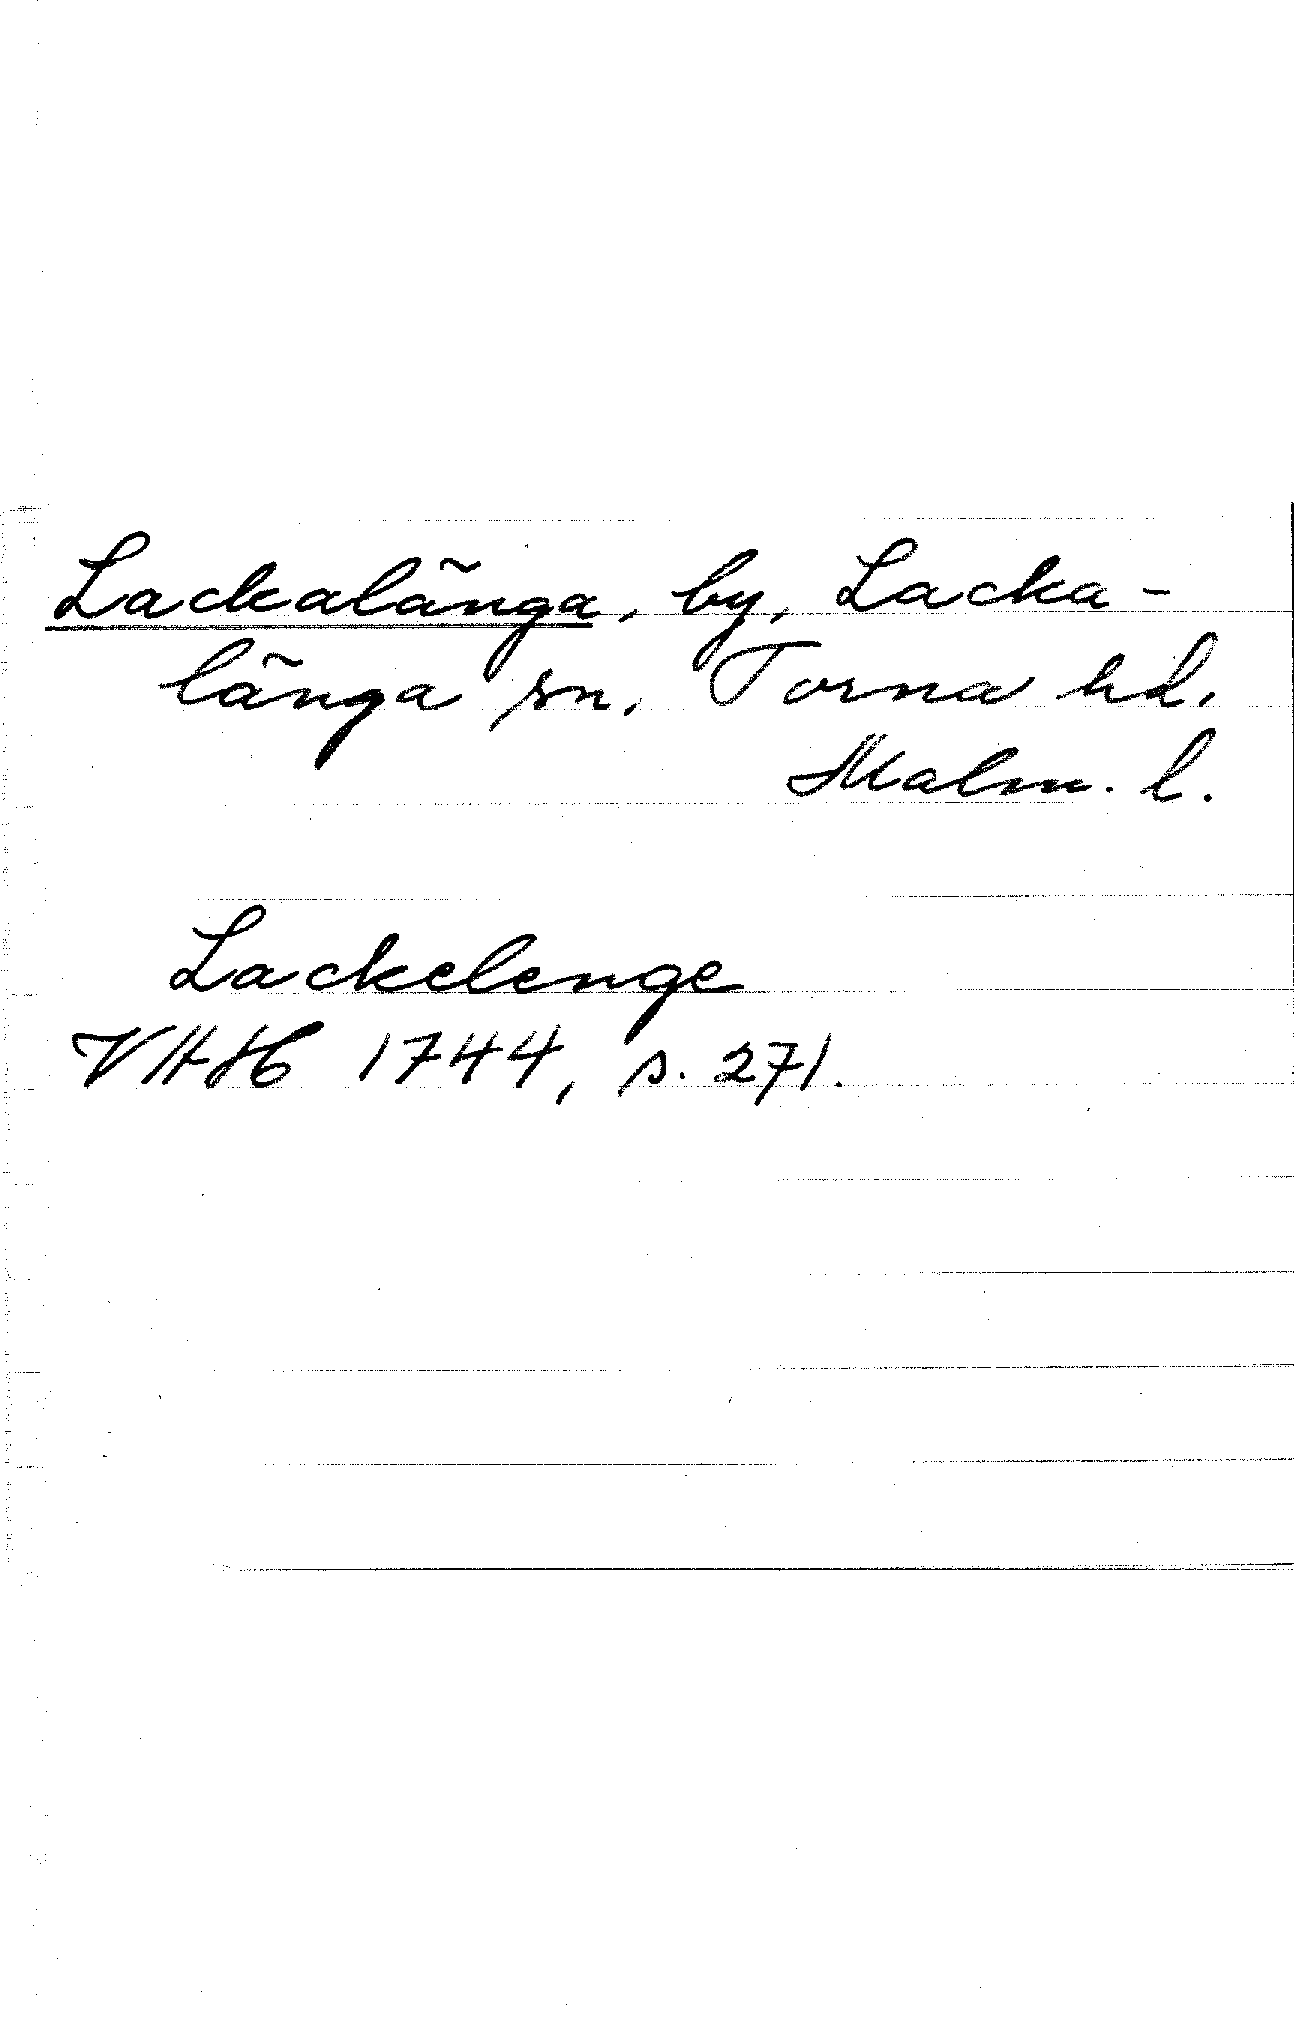 Lackalänga, by, Lacka-
länga sn, Torna hd,
Malm. l.
Lackelenge
VHH 1744, s. 271.